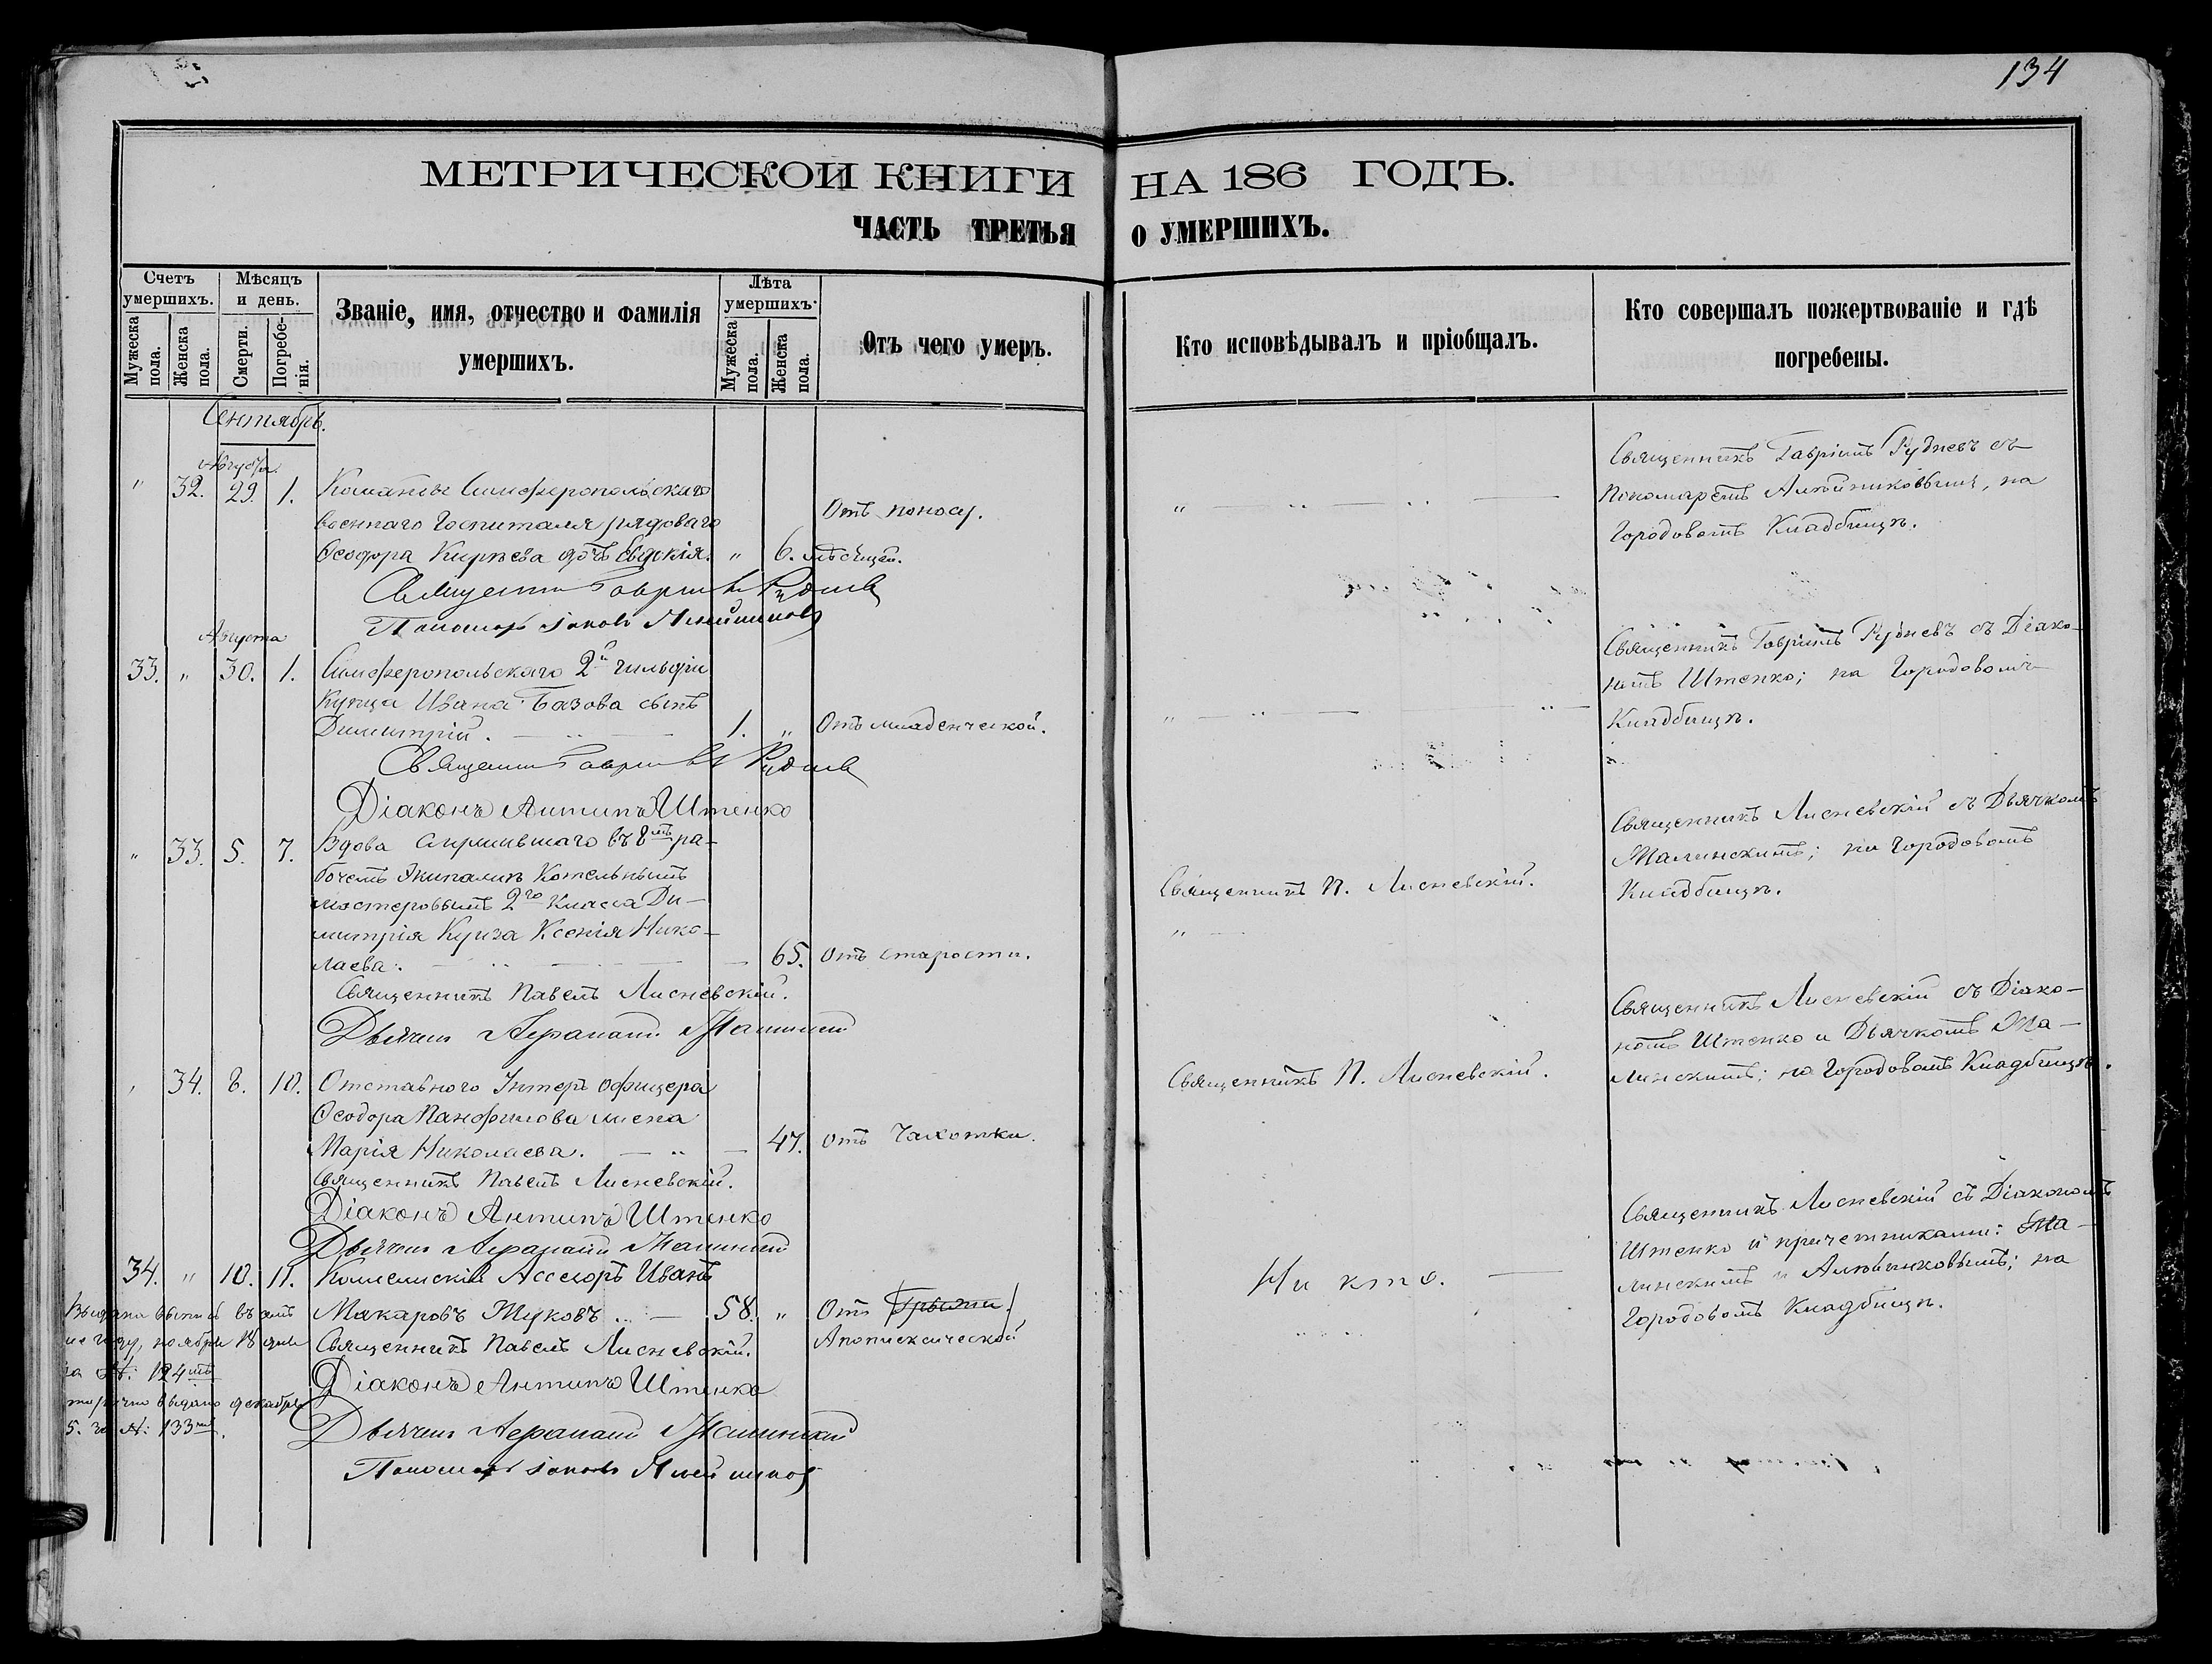 134
МЕТРИЧЕСКОЙ КНИГИ НА 186 ГОДЪ.
ЧАСТЬ ТРЕТЬЯ О УМЕРШИХЪ.
Счетъ умершихъ.
Мужеска пола.
Женска пола.
Мѣсяцъ и день.
Смерти.
Погребе-нія.
Званіе, имя, отчество и фамилія
умершихъ.
Лѣта умершихъ.
Мужеска пола.
Женска пола.
Отъ чего умеръ.
Кто исповѣдывалъ и пріобщалъ.
Кто совершалъ пожертвованіе и гдѣ
погребены.
Сентябрь.
Августа.
" 32. 29. 1. Команды Симферопольскаго
военнаго Госпиталя рядоваго
Ѳеодора Киряева дочь Евдокія. " 6. мѣсяцей.
Отъ поносу.
Священникъ Гавріилъ Рудневъ съ
Пономарёмъ Алейниковымъ, на
Городовомъ Кладбищѣ.
Священникъ Гавриилъ Руднев
Пономарь Іаковъ Алейников
Августа
33. " 30. 1. Симферопольскаго 2й гильдіи
Купца Ивана Базова сынъ
Димитрій. 1. " Отъ младенческой.
Священникъ Гавріилъ Рудневъ съ Діако-
номъ Штенко; на Городовомъ
Кладбищѣ.
Священникъ Гавриилъ Руднев
Діаконъ Антипъ Штенко
" 33. 5. 7. Вдова служившаго въ 8мъ ра-
бочемъ Экипажѣ Котельнымъ
мастеровымъ 2го Класса Ди-
митрія Куиза Ксенія Нико-
лаева. 65. Отъ старости.
Священникъ П. Лисневскій.
Священникъ Лисневскій съ Дьячкомъ
Малинскимъ; на Городовомъ
Кладбищѣ.
Священникъ Павелъ Лисневскій.
Дьячекъ
" 34. 8. 10. Отставного Унтеръ офицера
Ѳеодора Панфилова жена
Марія Николаева. 47. отъ Чахотки.
Священникъ П. Лисневскій.
Священникъ Лисневскій съ Діако-
номъ Штенко и Дьячкомъ Ма-
линскимъ; на Городовомъ Кладбищѣ.
Священникъ Павелъ Лисневскій.
Діаконъ Антипъ Штенко
Дьячекъ
34. " 10. 11. Коллежскій Ассесоръ Иванъ
Макаровъ Жуковъ 58. " Отъ Грыжи.
Апоплексической
Ни кто.
Священникъ Лисневскій съ Діакономъ
Штенко и причетниками: Ма-
линскимъ и Алейниковымъ; на
Городовомъ Кладбищѣ.
Священникъ Павелъ Лисневскій.
Діаконъ Антипъ Штенко
Дьячекъ
Пономарь Іаковъ Алейников
въ
же году, ноября 18 дня
за №: 124мъ
выдано декабря
5. за №: 133мъ.